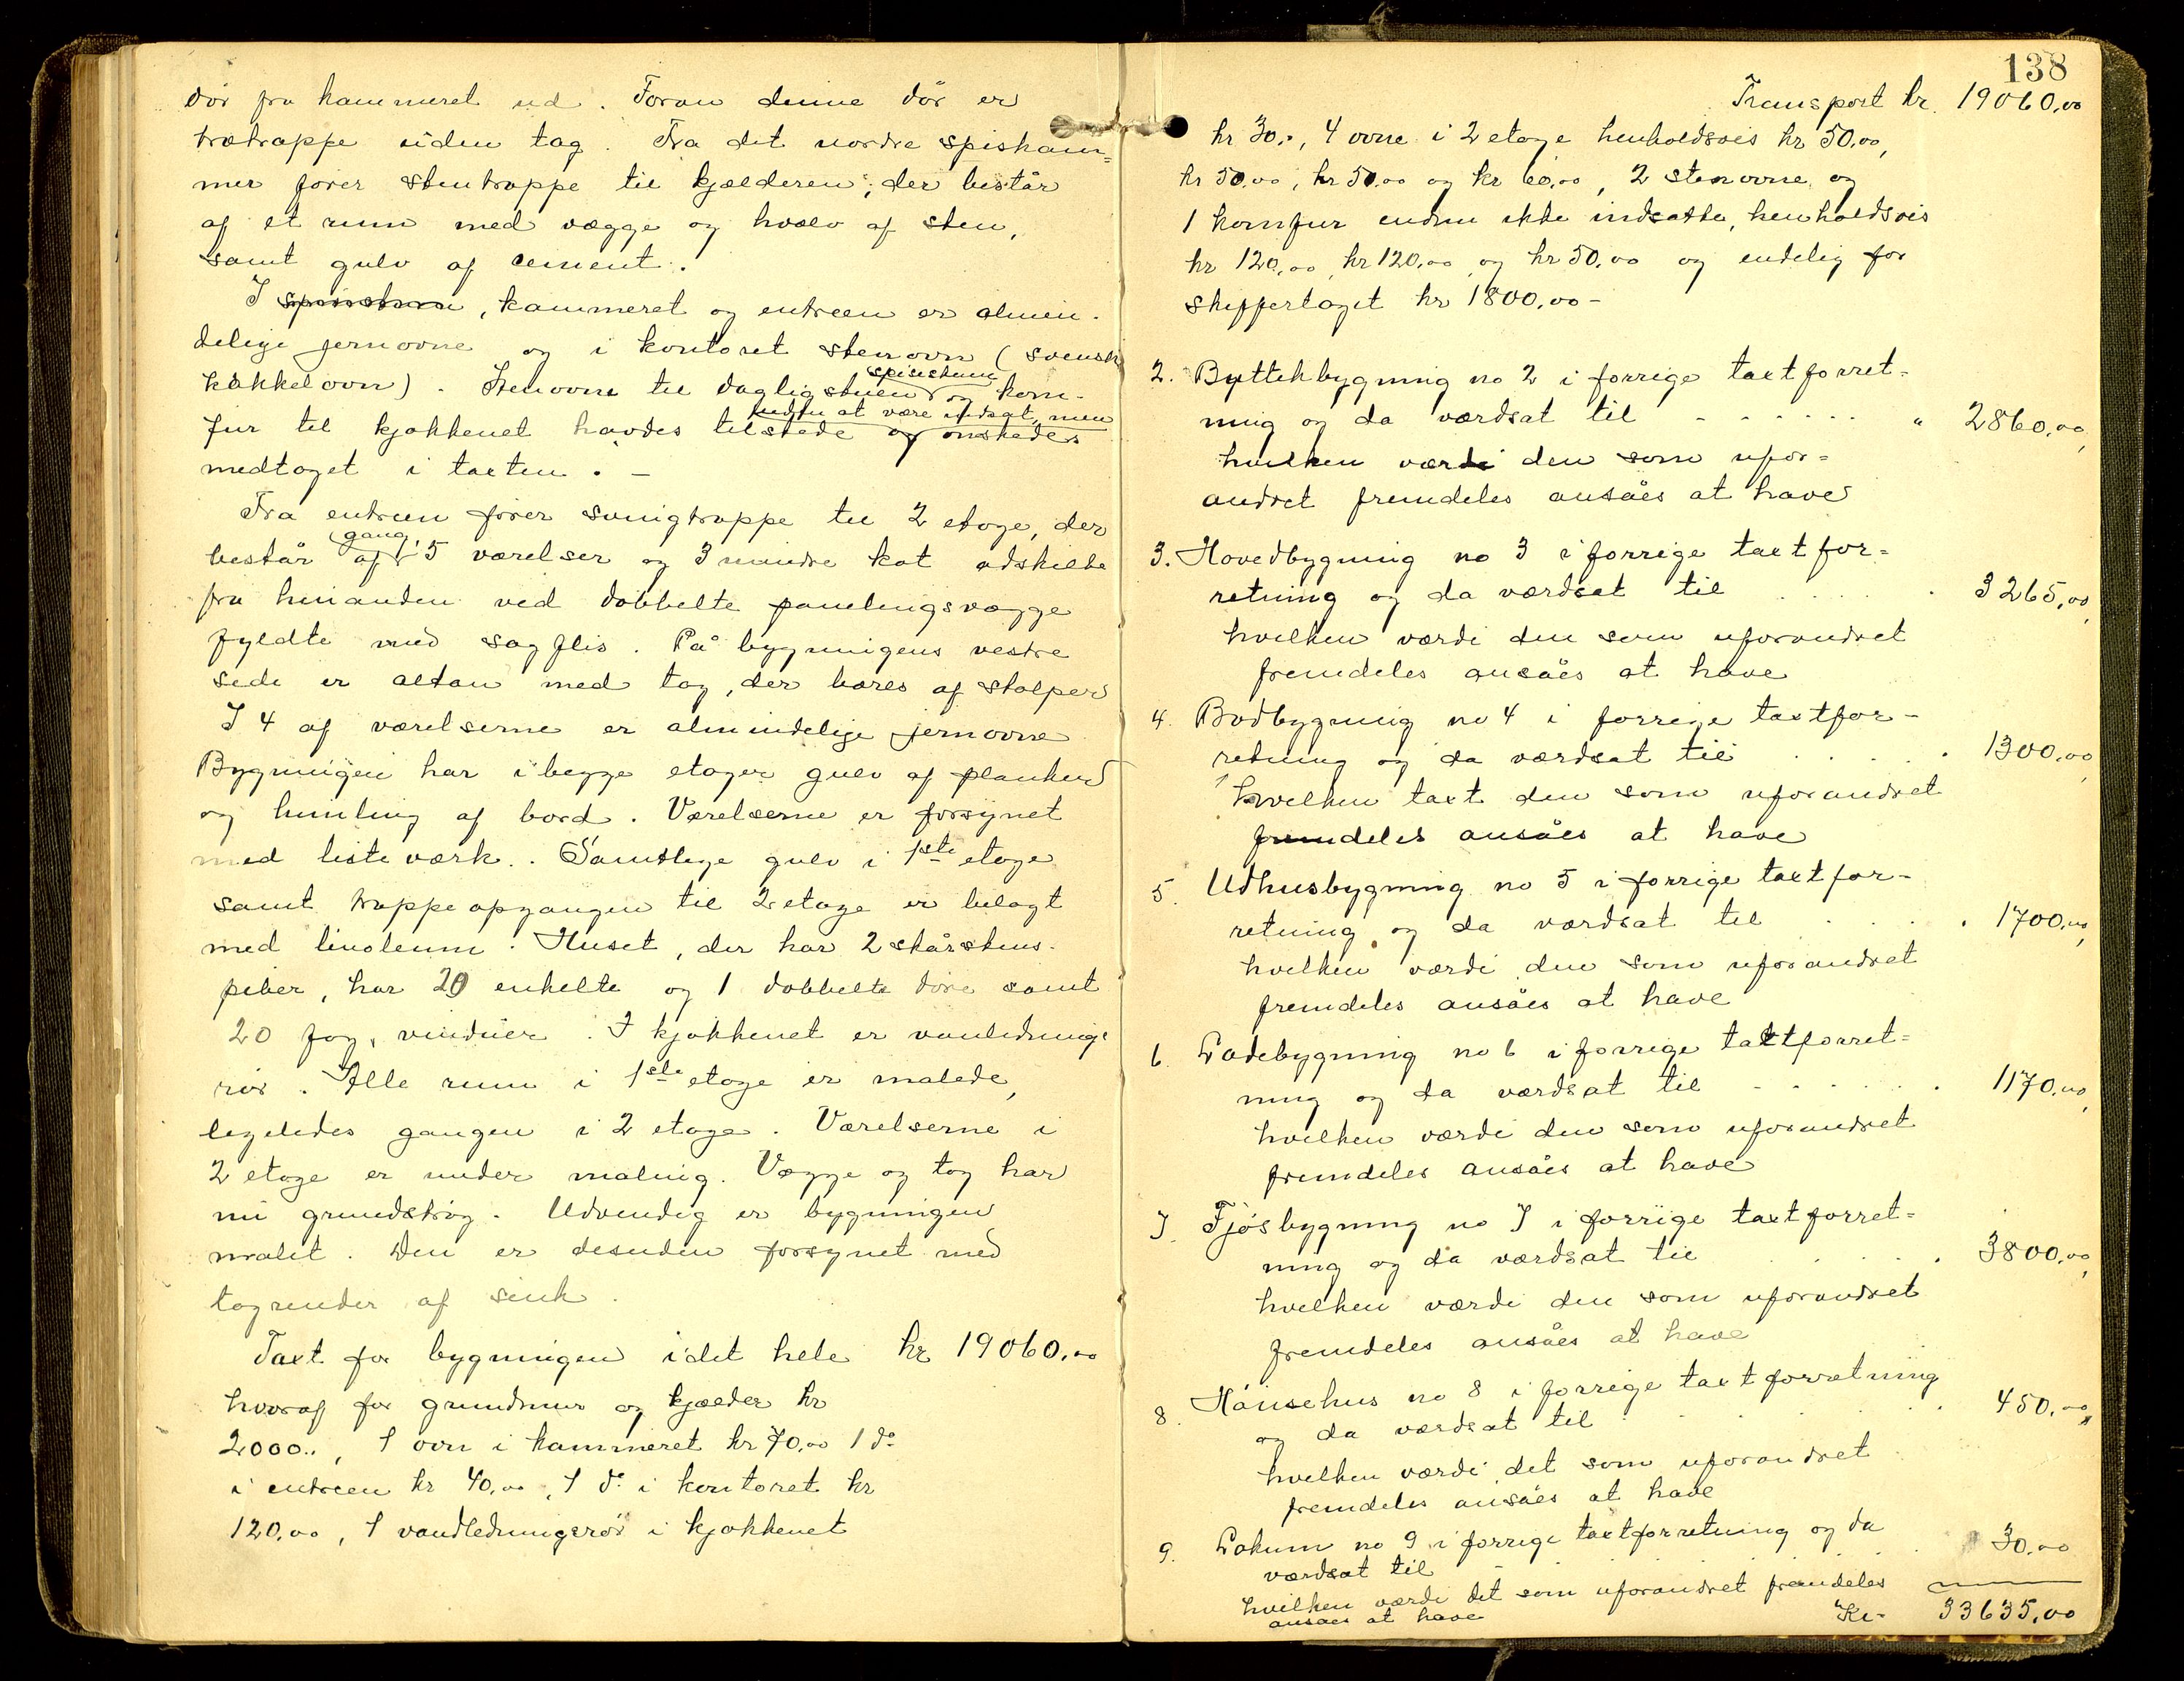 dør fra kammeret ud. Foran denne dør er
trætrappe uden tag. Fra det nordre spiskam=
mer fører stentrappe til kjælderen; der består
af et rum med vægge og hvælv af sten,
samt gulv af cement.
I spisestuen, kammeret og entreen er almin-
delige jernovne og i kontoret stenovn (svensk
kakkelovn). Stenovne til dagligstuen og kom-
spisestuen
fur til kjøkkenet havdes tilstede og ønskedes
endnu at være indsat, men
medtaget i taxten. –
Fra entreen fører svingtrappe til 2 etage, der
består af 5 værelser og 3 mindre kot adskilte
gang,
fra hinanden ved dobbelte panelingsvægge
fyldte med sagflis. På bygningens vestre
side er altan med tag, der bæres af stolper
I 4 af værelserne er almindelige jernovne
Bygningen har i begge etager gulv af planker
og himling af bord. Værelserne er forsynet
med listeværk. Samtlige gulv i 1ste etage
samt trappeopgangen til 2 etage er belagt
med linoleum. Huset, der har 2 skårstens-
piber, har 20 enkelte og 1 dobbelte døre samt
20 fag vinduer. I kjøkkenet er vanlednings
rør. Alle rum i 1ste etage er malede,
ligeledes gangen i 2 etage. Værelserne i
2 etage er under maling. Vægge og tag har
nu grundstrøg. Udvendig er bygningen
malet. Den er desuden forsynet med
tagrender af sink.
Taxt for bygningen i det hele kr 19060,00
hvoraf for grundmur og kjælder kr
2000.., 1 ovn i kammeret kr 70,00 1 do
i entreen kr 40,00, 1 do i kontoret kr
120,00, 1 vandledningsrør i kjøkkenet
138
Transport kr. 19060,00
kr 30.., 4 ovne i 2 etage henholdsvis kr 50,00,
kr 50,00, kr 50,00 og kr 60,00, 2 stenovne og
1 komfur endnu ikke indsatte, henholdsvis
kr 120,00, kr 120,00 og kr 50,00 og endelig for
skiffertaget kr 1800,00 –
2. Byttekbygning no 2 i forrige taxtforret=
ning og da værdsat til - - - - - - " 2860,00,
hvilken værdi den som ufor=
andret fremdeles ansåes at have
3. Hovedbygning no 3 i forrige taxtfor=
retning og da værdsat til . . . . . 3265,00,
hvilken værdi den som uforandret
fremdeles ansåes at have
4. Bodbygning no 4 i forrige taxtfor-
retning og da værdsat til . . . . . 1300,00,
hvilken taxt den som uforandret
fremdeles ansåes at have
5. Udhusbygning no 5 i forrige taxtfor-
retning og da værdsat til . . . . . 1700,00,
hvilken værdi den som uforandret
fremdeles ansåes at have
6. Ladebygning no 6 i forrige taxtforret=
ning og da værdsat til - . . . . . 1170,00,
hvilken værdi den som uforandret
fremdeles ansåes at have
7. Fjøsbygning no 7 i forrige taxtforret=
ning og da værdsat til . . . . 3800,00,
hvilken værdi den som uforandret
fremdeles ansåes at have
8. Hønsehus no 8 i forrige taxtforretning
og da værdsat til . . . . . . 450,00,
hvilken værdi det som uforandret
fremdeles ansåes at have
9. Lokum no 9 i forrige taxtforretning og da
værdsat til - . . . . . . 30,00
hvilken værdi det som uforandret fremdeles
ansaes at have
Kr- 33635,00